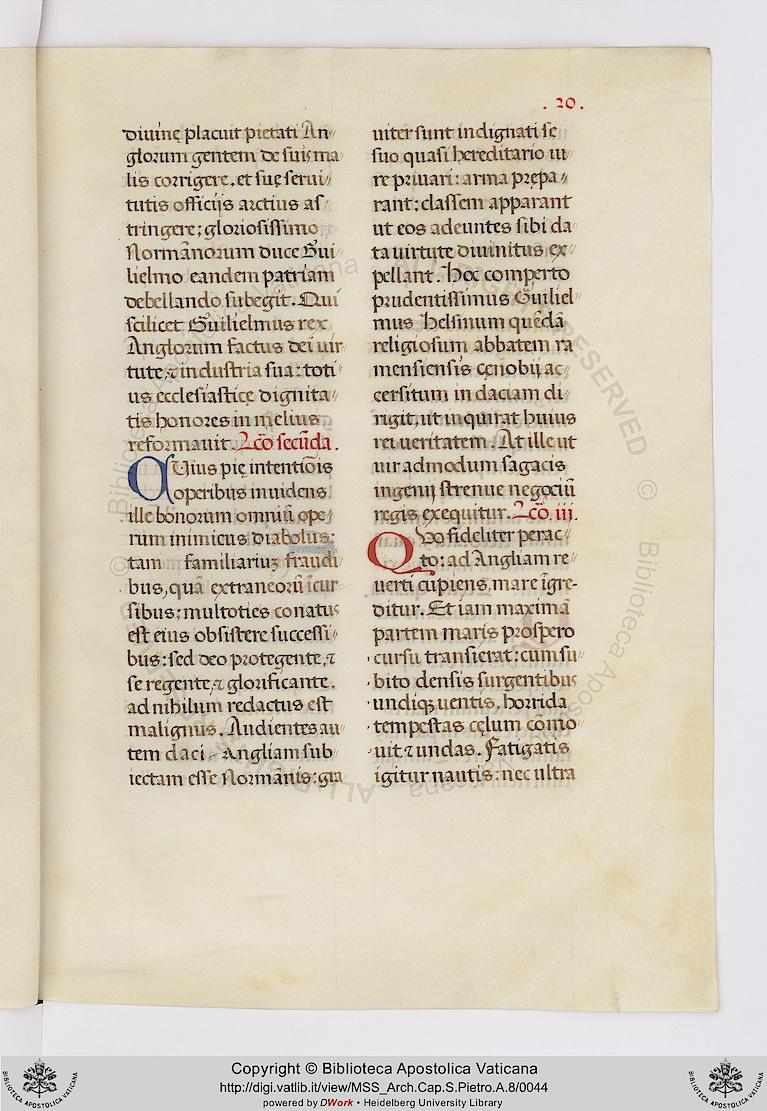 . 20 .
diuinę placuit pietati An〃
glorum gentem de suis ma
lis corrigere . et suę serui〃
tutis officijs arctius as〃
tringere ; gloriosissimo
Normãnorum duce Gui〃
lielmo eandem patriam
debellando subegit . Qui
scilicet Guilielmus rex
Anglorum factus dei uir
tute , ⁊ industria sua : toti〃
us ecclesiasticę dignita〃
tis honores in melius
reformauit . Lc̃o secũda .
Cuius pię intentiõis
operibus inuidens
ille bonorum omniũ ope〃
rum inimicus diabolus :
tam familiariuȝ fraudi
bus , quã extraneorũ ĩcur
sibus ; multoties conatus
est eius obsistere successi〃
bus : sed deo protegente , ⁊
se regente , ⁊ glorificante .
ad nihilum redactus est
malignus . Audientes au〃
tem daci Angliam sub〃
iectam esse Normãnis : gra
uiter sunt indignati se
suo quasi hereditario iu〃
re priuari : arma prępa〃
rant : classem apparant
ut eos adeuntes sibi da〃
ta uirtute diuinitus ex〃
pellant . Hoc comperto
prudentissimus Guiliel〃
mus Helsinum quẽdã
religiosum abbatem ra〃
mensiensis cęnobij ac〃
cersitum in daciam di〃
rigit , ut inquirat huius
rei ueritatem . At ille ut
uir admodum sagacis
ingenij strenue negociũ
regis exequitur . Lc̃o . iii .
Quo fideliter perac〃
to : ad Angliam re〃
uerti cupiens , mare ĩgre〃
ditur . Et iam maximã
partem maris prospero
cursu transierat : cum su〃
bito densis surgentibus
undiqȝ uentis , horrida
tempestas cęlum cõmo〃
uit ⁊ undas . Fatigatis
igitur nautis : nec ultra
Copyright © Biblioteca Apostolica Vaticana
http://digi.vatlib.it/view/MSS_Arch.Cap.S.Pietro.A.8/0044
powered by DWork • Heidelberg University Library